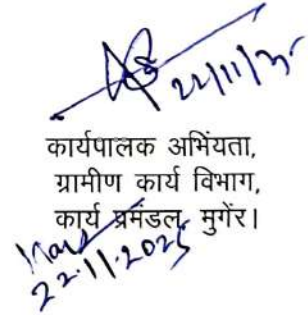 22/11/25
कार्यपालक अभिंयता,
ग्रामीण कार्य विभाग,
कार्य प्रमंडल, मुगेंर।
22.11.2025